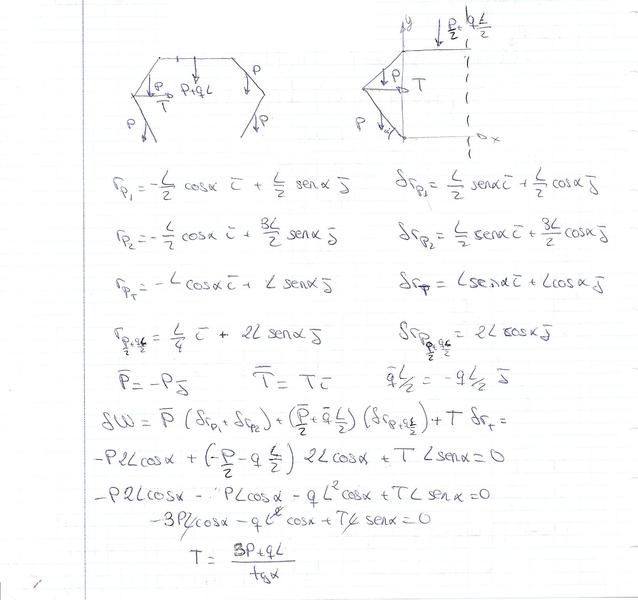 P P+qL P T P P
y P/2 + qL/2 P T P α x
r_P₁ = -L/2 cosα i̅ + L/2 senα j̅ δr_P₁ = L/2 senα i̅ + L/2 cosα j̅
r_P₂ = -L/2 cosα i̅ + 3L/2 senα j̅ δr_P₂ = L/2 senα i̅ + 3L/2 cosα j̅
r_P_T = -L cosα i̅ + L senα j̅ δr_P = L senα i̅ + L cosα j̅
r_P/2+qL/2 = L/4 i̅ + 2L senα j̅ δr_P_P/2+qL/2 = 2L cosα j̅
P̅ = -P j̅ T̅ = T i̅ q̅L/2 = -qL/2 j̅
δW = P̅ (δr_P₁ + δr_P₂) + (P̅/2 + q̅ L/2) (δr_P+qL/2) + T δr_T =
-P2Lcosα + (-P/2 - q L/2) 2Lcosα + T L senα = 0
-P2Lcosα - PLcosα - qL²cosα + TL senα = 0
-3PLcosα - qL²cosα + TL senα = 0
T = 3P+qL / tgα